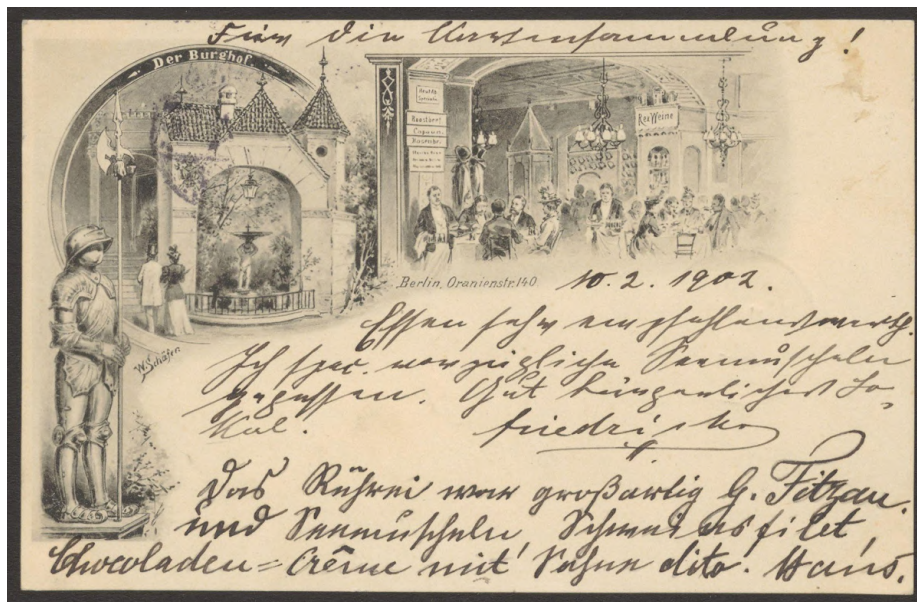 Für die Kartensammlung!
Der Burghof
Roastbeef
Rex Weine
Berlin, Oranienstr. 140
10.2.1902.
Essen sehr empfehlenswerth.
Ich spec. vorzügliche Seemuscheln
gegessen. Gut bürgerliches Lo-
kal.
W. Schäfer
Das Rührei war großartig G. Fitzau.
und Seemuscheln, Schweinsfilet,
Chocoladen=Crême mit Sahne dito. Hans.